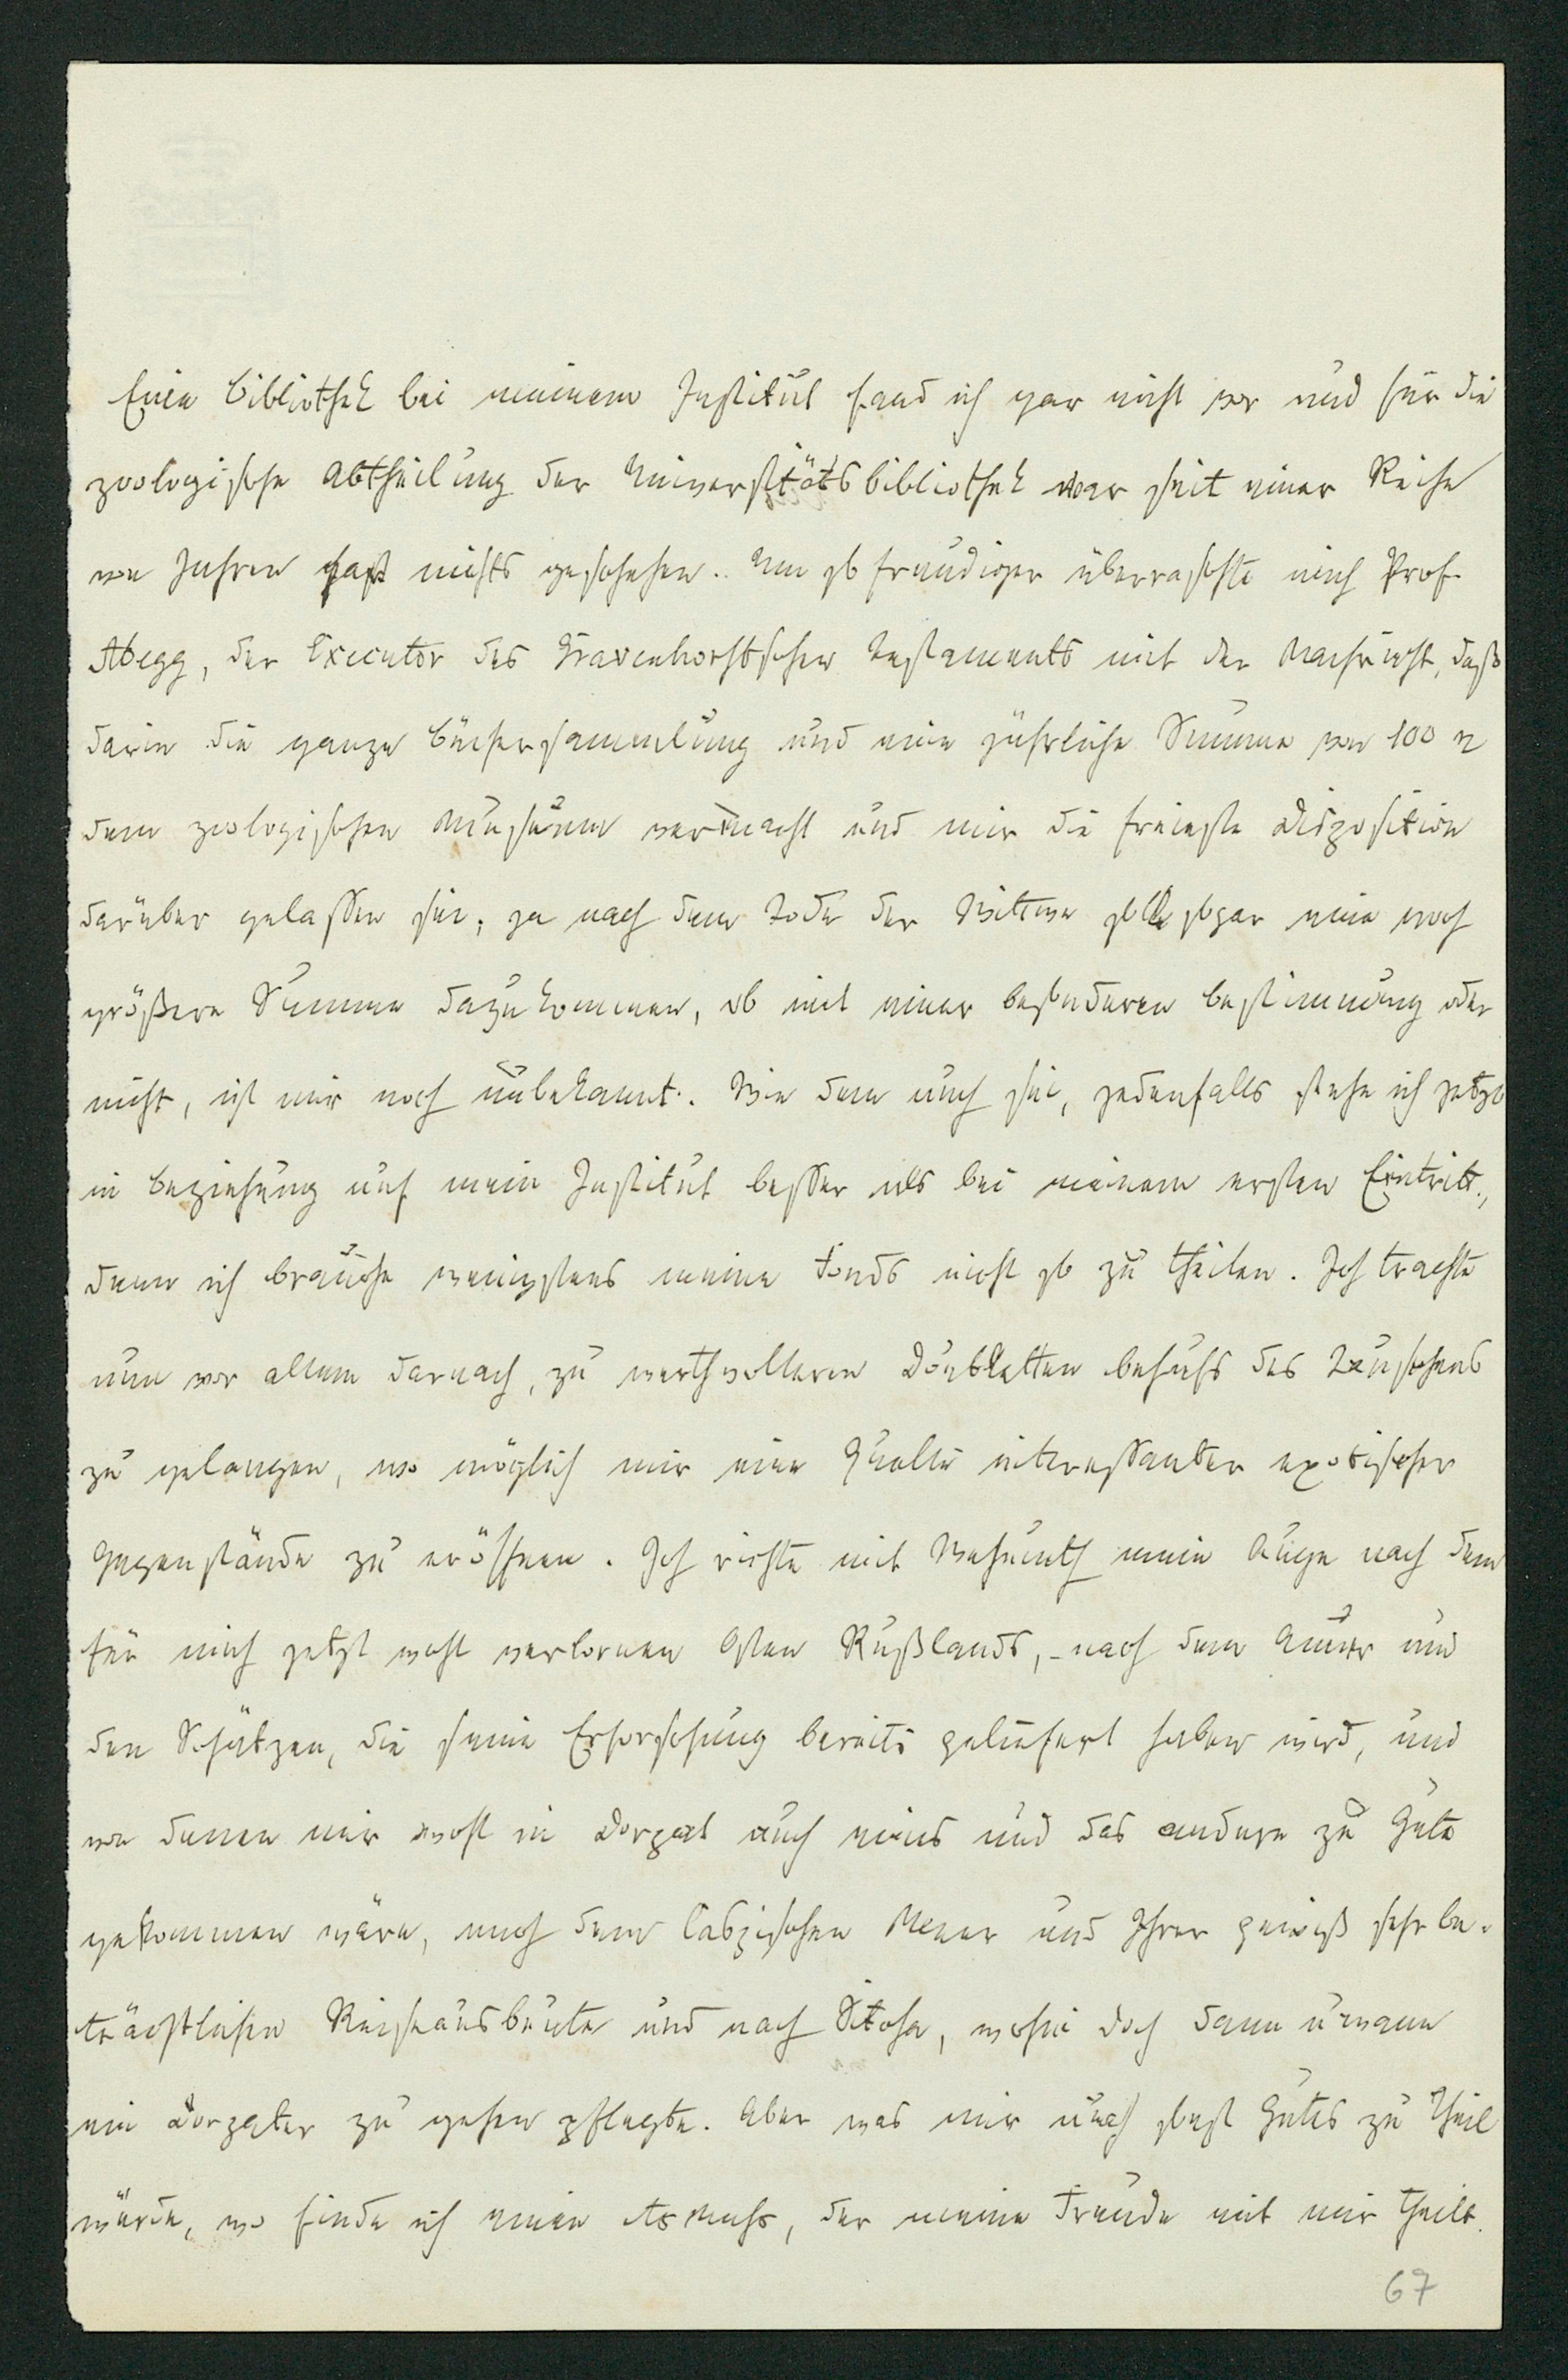 Eine Bibliothek bei meinem Institut fand ich gar nicht vor und für die
zoologische Abtheilung der Universitätsbibliothek war seit einer Reihe
von Jahren fast nichts geschehen. Um so freudiger überraschte mich Prof.
Abegg, der Executor des Gravenhorstschen Testaments mit der Nachricht, daß
darin die ganze Büchersammlung und eine jährliche Summe von 100 r
dem zoologischen Museum vermacht und mir die freieste Disposition
darüber gelassen sei; ja nach dem Tode der Wittwe solle sogar eine noch
größere Summe dazukommen, ob mit einer besonderen Bestimmung oder
nicht, ist mir noch unbekannt. Wie dem auch sei, jedenfalls stehe ich jetzt
in Beziehung auf mein Institut besser als bei meinem ersten Eintritt,
denn ich brauche wenigstens meine Fonds nicht so zu theilen. Ich trachte
nun vor allem darnach, zu werthvolleren Doubletten behufs des Tauschens
zu gelangen, wo möglich mir eine Quelle interessanter exotischer
Gegenstände zu eröffnen. Ich richte mit Wehmuth mein Auge nach dem
für mich jetzt wohl verlornen Osten Rußlands, - nach dem Amur und
den Schätzen, die seine Erforschung bereits geliefert haben wird, und
von denen mir wohl in Dorpat auch eines und das andere zu Gute
gekommen wäre, nach dem Caspischen Meer und Ihrer gewiß sehr be-
trächtlichen Reiseausbeute und nach Sitcha, wohin doch dann u wann
ein Dorpater zu gehen pflegte. Aber was mir auch sonst Gutes zu Theil
würde, wo finde ich einen Asmuss, der meine Freude mit mir theilt.
67